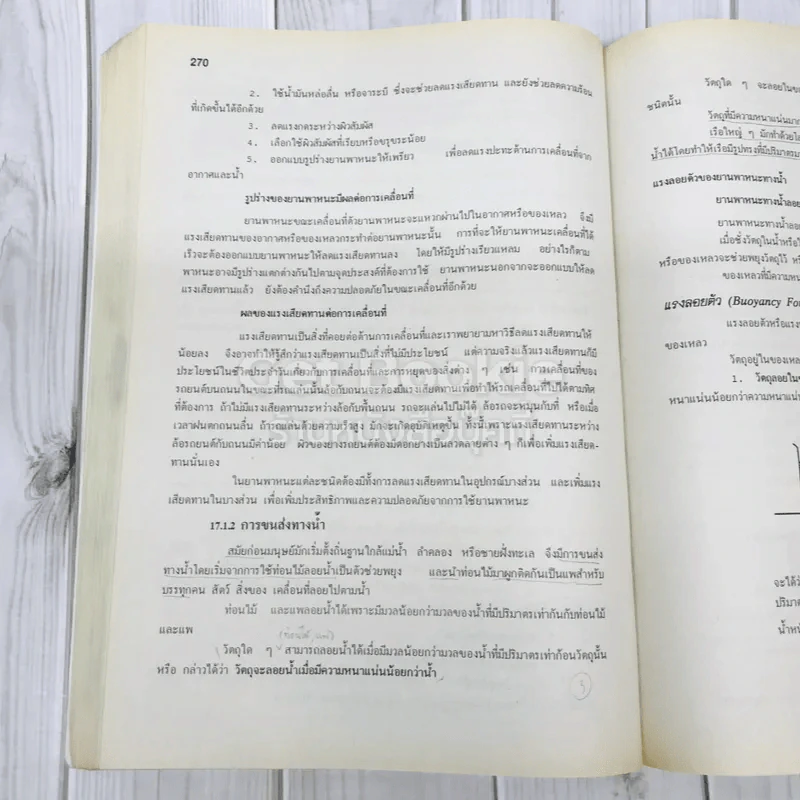 270
2. ใช้น้ำมันหล่อลื่น หรือจาระบี ซึ่งจะช่วยลดแรงเสียดทาน และยังช่วยลดความร้อน
ที่เกิดขึ้นได้อีกด้วย
3. ลดแรงกดระหว่างผิวสัมผัส
4. เลือกใช้ผิวสัมผัสที่เรียบหรือขรุขระน้อย
5. ออกแบบรูปร่างยานพาหนะให้เพรียว เพื่อลดแรงปะทะด้านการเคลื่อนที่จาก
อากาศและน้ำ
รูปร่างของยานพาหนะมีผลต่อการเคลื่อนที่
ยานพาหนะขณะเคลื่อนที่ตัวยานพาหนะจะแหวกผ่านไปในอากาศหรือของเหลว จึงมี
แรงเสียดทานของอากาศหรือของเหลวกระทำต่อยานพาหนะนั้น การที่จะให้ยานพาหนะเคลื่อนที่ได้
เร็วจะต้องออกแบบยานพาหนะให้ลดแรงเสียดทานลง โดยให้มีรูปร่างเรียวแหลม อย่างไรก็ตาม
พาหนะอาจมีรูปร่างแตกต่างกันไปตามจุดประสงค์ที่ต้องการใช้ ยานพาหนะนอกจากจะออกแบบให้ลด
แรงเสียดทานแล้ว ยังต้องคำนึงถึงความปลอดภัยในขณะเคลื่อนที่อีกด้วย
ผลของแรงเสียดทานต่อการเคลื่อนที่
แรงเสียดทานเป็นสิ่งที่คอยต่อต้านการเคลื่อนที่และเราพยายามหาวิธีลดแรงเสียดทานให้
น้อยลง จึงอาจทำให้รู้สึกว่าแรงเสียดทานเป็นสิ่งที่ไม่มีประโยชน์ แต่ความจริงแล้วแรงเสียดทานก็มี
ประโยชน์ในชีวิตประจำวันเกี่ยวกับการเคลื่อนที่และการหยุดของสิ่งต่าง ๆ เช่น การเคลื่อนที่ของ
รถยนต์บนถนนในขณะที่รถแล่นนั้นล้อกับถนนจะต้องมีแรงเสียดทานเพื่อทำให้รถเคลื่อนที่ไปได้ตามทิศ
ที่ต้องการ ถ้าไม่มีแรงเสียดทานระหว่างล้อกับพื้นถนน รถจะแล่นไปไม่ได้ ล้อรถจะหมุนกับที่ หรือเมื่อ
เวลาฝนตกถนนลื่น ถ้ารถแล่นด้วยความเร็วสูง มักจะเกิดอุบัติเหตุขึ้น ทั้งนี้เพราะแรงเสียดทานระหว่าง
ล้อรถยนต์กับถนนมีค่าน้อย ผิวของยางรถยนต์ต้องมีดอกยางเป็นลวดลายต่าง ๆ ก็เพื่อเพิ่มแรงเสียด-
ทานนั่นเอง
ในยานพาหนะแต่ละชนิดต้องมีทั้งการลดแรงเสียดทานในอุปกรณ์บางส่วน และเพิ่มแรง
เสียดทานในบางส่วน เพื่อเพิ่มประสิทธิภาพและความปลอดภัยจากการใช้ยานพาหนะ
17.1.2 การขนส่งทางน้ำ
สมัยก่อนมนุษย์มักเริ่มตั้งถิ่นฐานใกล้แม่น้ำ ลำคลอง หรือชายฝั่งทะเล จึงมีการขนส่ง
ทางน้ำโดยเริ่มจากการใช้ท่อนไม้ลอยน้ำเป็นตัวช่วยพยุง และนำท่อนไม้มาผูกติดกันเป็นแพสำหรับ
บรรทุกคน สัตว์ สิ่งของ เคลื่อนที่ลอยไปตามน้ำ
ท่อนไม้ และแพลอยน้ำได้เพราะมีมวลน้อยกว่ามวลของน้ำที่มีปริมาตรเท่ากันกับท่อนไม้
และแพ
(ท่อนไม้, แพ)
วัตถุใด ๆ สามารถลอยน้ำได้เมื่อมีมวลน้อยกว่ามวลของน้ำที่มีปริมาตรเท่าก้อนวัตถุนั้น
หรือ กล่าวได้ว่า วัตถุจะลอยน้ำเมื่อมีความหนาแน่นน้อยกว่าน้ำ
3
วัตถุใด ๆ จะลอยในของ
ชนิดนั้น
วัตถุที่มีความหนาแน่นมาก
เรือใหญ่ ๆ มักทำด้วยโล
น้ำได้โดยทำให้เรือมีรูปทรงที่มีปริมาตรมา
แรงลอยตัวของยานพาหนะทางน้ำ
ยานพาหนะทางน้ำลอย
ยานพาหนะทางน้ำลอย
เมื่อชั่งวัตถุในน้ำหรือใ
หรือของเหลวจะช่วยพยุงวัตถุไว้ หรื
ของเหลวที่มีความหน
แรงลอยตัว (Buoyancy For
แรงลอยตัวหรือแรง
ของเหลว
วัตถุอยู่ในของเหล
1. วัตถุลอยในของ
หนาแน่นน้อยกว่าความหนาแน่
จะได้ว่
ปริมา
น้ำหนั